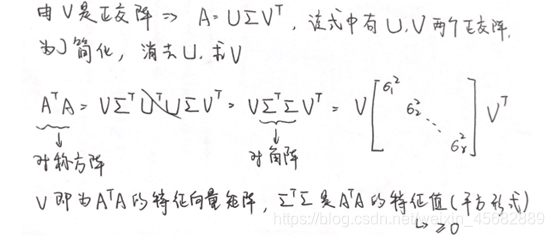 由V是正交阵 => A=UΣV^T, 该式中有U,V两个正交阵.
为了简化, 消去U, 求V
A^T A = VΣ^T U^T UΣV^T = VΣ^TΣV^T = V [σ₁² σ₂² ⋱ σᵣ²] V^T
对称方阵 对角阵
V即为A^T A的特征向量矩阵, Σ^TΣ是A^T A的特征值(平方形式)
↳ ≥0
https://blog.csdn.net/weixin_45682889